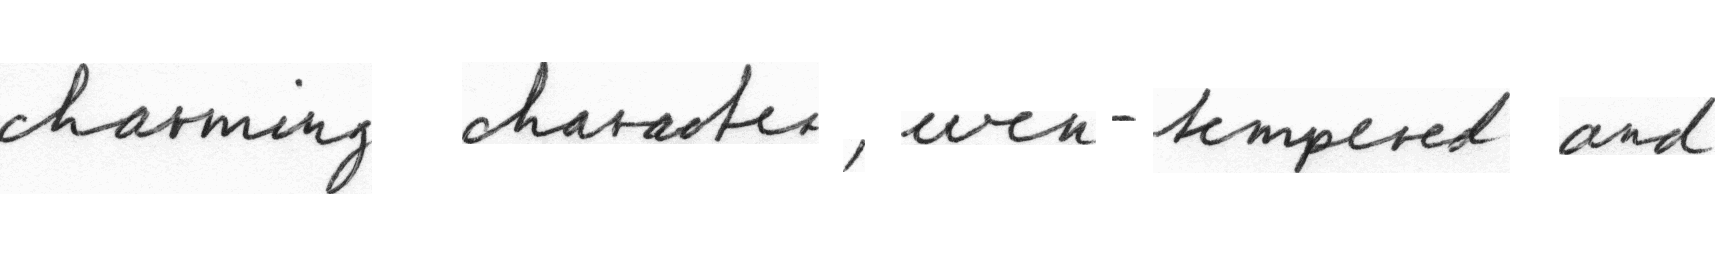 charming character, even-tempered and